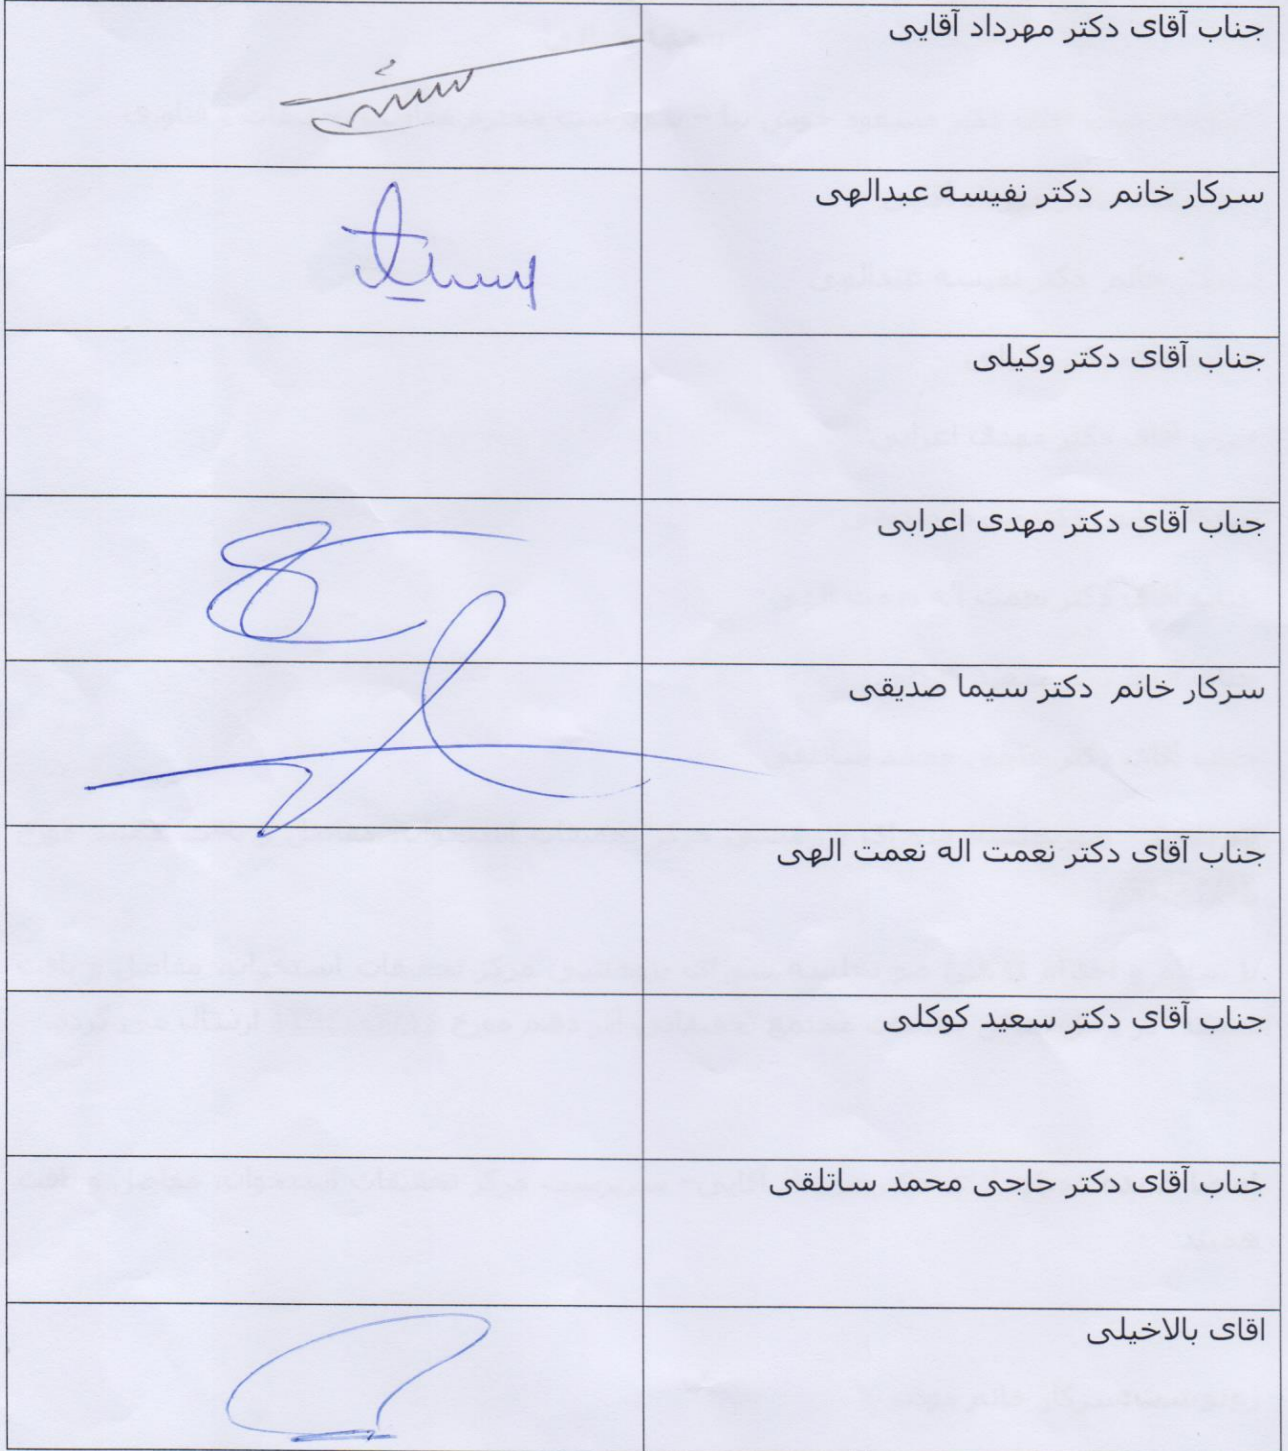 جناب آقای دکتر مهرداد آقایی
سرکار خانم دکتر نفیسه عبدالهی
جناب آقای دکتر وکیلی
جناب آقای دکتر مهدی اعرابی
سرکار خانم دکتر سیما صدیقی
جناب آقای دکتر نعمت اله نعمت الهی
جناب آقای دکتر سعید کوکلی
جناب آقای دکتر حاجی محمد ساتلقی
اقای بالاخیلی